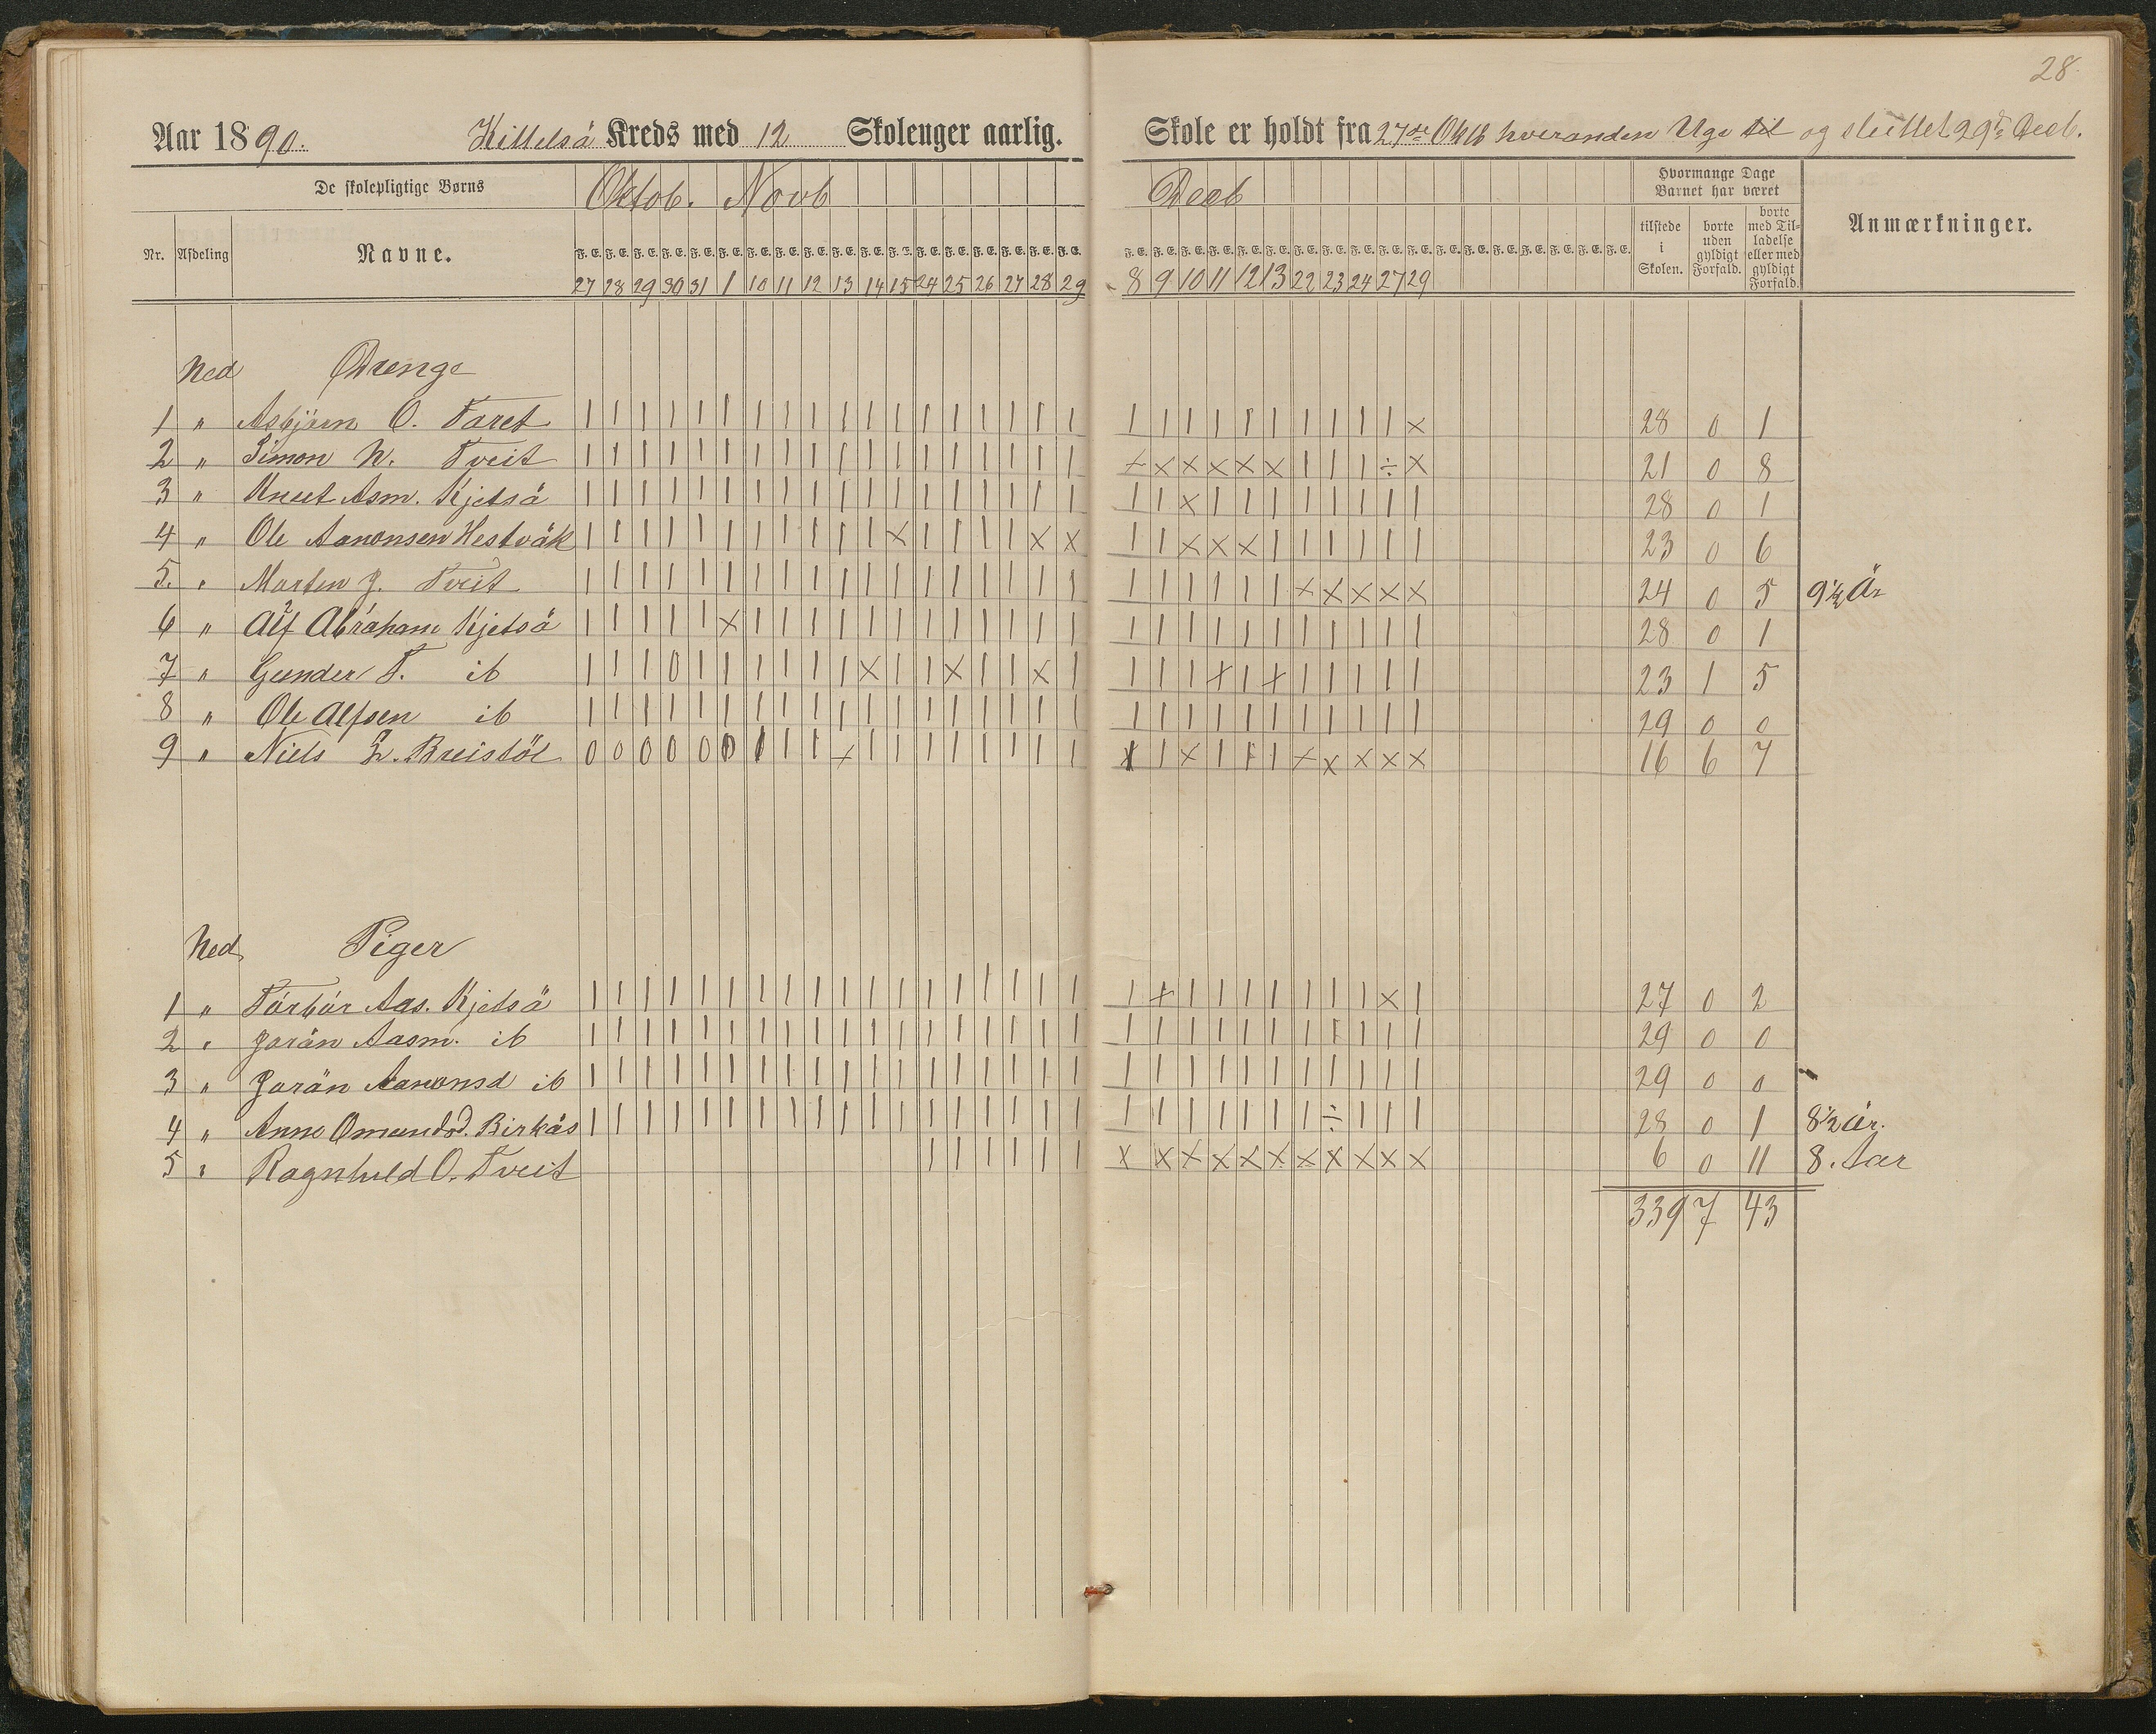 28.
Aar 1890. Kittelså Kreds med 12 Skolenger aarlig. Skole er holdt fra 27de Oktb hveranden Uge til og sluttet 29de Decb.
De skolepligtige Børns Oktob. Novb Decb Hvormange Dage Barnet har været
Nr. Afdeling Navne. F. E. F. E. F. E. F. E. F. E. F. E. F. E. F. E. F. E. F. E. F. E. F. E. F. E. F. E. F. E. F. E. F. E. F. E. F. E. F. E. F. E. F. E. F. E. F. E. F. E. F. E. F. E. F. E. F. E. F. E. F. E. F. E. F. E. F. E. F. E. F. E. tilstede i Skolen. borte uden gyldigt Forfald. borte med Tilladelse eller med gyldigt Forfald. Anmærkninger.
27 28 29 30 31 1 10 11 12 13 14 15 24 25 26 27 28 29 8 9 10 11 12 13 22 23 24 27 29
Ned Drenge
1 " Asbjørn O. Faret | | | | | | | | | | | | | | | | | | | | | | | | | | | | × 28 0 1
2 " Simon N. Tveit | | | | | | | | | | | | | | | | | | × × × × × × | | | ÷ × 21 0 8
3 " Knut Asm. Kjetså | | | | | | | | | | | | | | | | | | | | × | | | | | | | | 28 0 1
4 " Ole Aanonsen Hestvåk | | | | | | | | | | | × | | | | × × | | × × × | | | | | | 23 0 6
5. " Marten J. Tveit | | | | | | | | | | | | | | | | | | | | | | | | × × × × × 24 0 5 9½ År
6 " Alf Abraham Kjetså | | | | | × | | | | | | | | | | | | | | | | | | | | | | | 28 0 1
7 " Gunder T. ib | | | 0 | | | | | | × | | × | | × | | | | × | × | | | | | 23 1 5
8 " Ole Alfsen ib | | | | | | | | | | | | | | | | | | | | | | | | | | | | | 29 0 0
9 " Niels L. Breistöl 0 0 0 0 0 0 | | | × | | | | | | | | × | × | | | × × × × × 16 6 7
Ned Piger
1 " Törbör Aas. Kjetså | | | | | | | | | | | | | | | | | | | × | | | | | | | | × | 27 0 2
2 " Jorån Aasm. ib | | | | | | | | | | | | | | | | | | | | | | | | | | | | | 29 0 0
3 " Jorån Aanonsd ib | | | | | | | | | | | | | | | | | | | | | | | | | | | | | 29 0 0
4 " Anne Omundsd. Birkås | | | | | | | | | | | | | | | | | | | | | | | | | ÷ | | | 28 0 1 8½ År.
5 " Ragnhild O. Tveit | | | | | | × × × × × × × × × × × 6 0 11 8. Aar
339 7 43